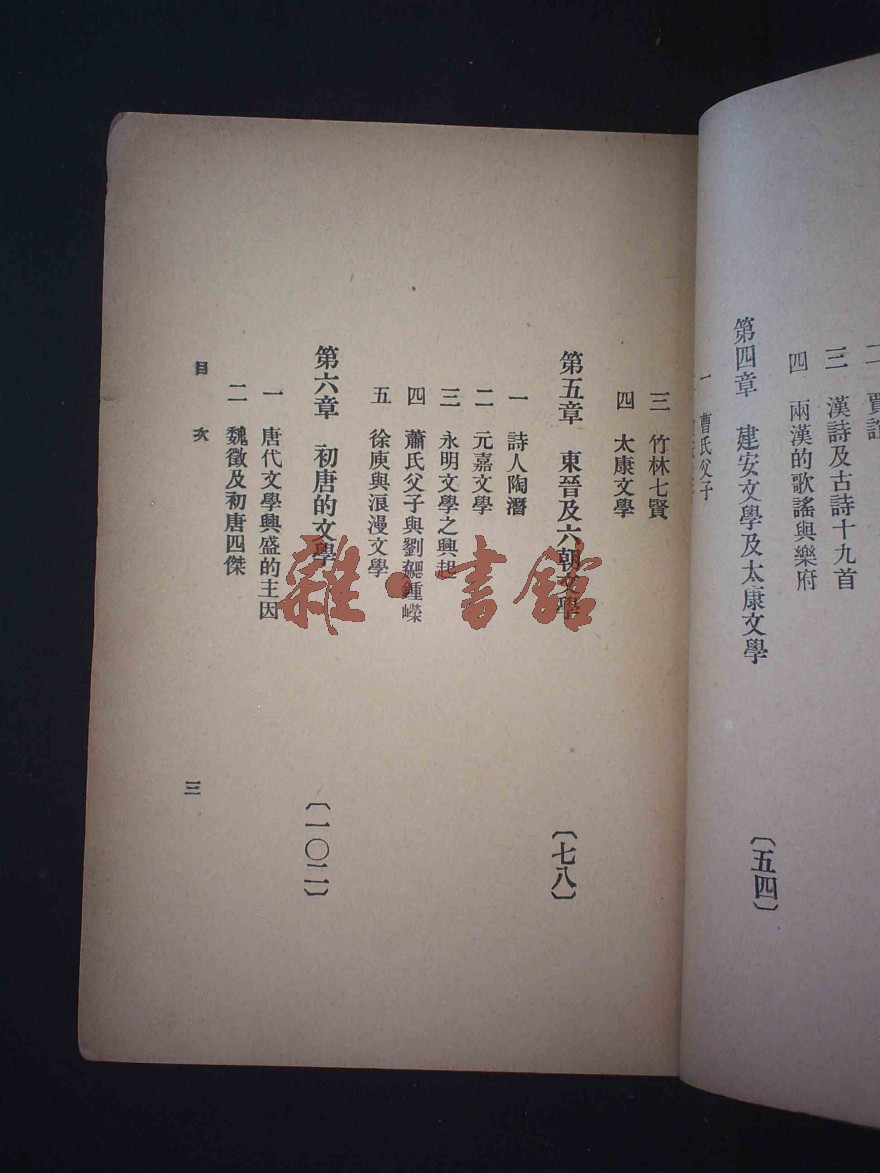 三 漢詩及古詩十九首
四 兩漢的歌謠與樂府
第四章 建安文學及太康文學 〔五四〕
一 曹氏父子
三 竹林七賢
四 太康文學
第五章 東晉及六朝文學 〔七八〕
一 詩人陶潛
二 元嘉文學
三 永明文學之興起
四 蕭氏父子與劉勰鍾嶸
五 徐庾與浪漫文學
第六章 初唐的文學 〔一〇二〕
一 唐代文學興盛的主因
二 魏徵及初唐四傑
目次 三
雜·書館